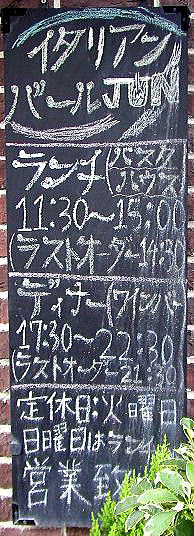 イタリアン
バールJUN
ランチ(パスタ
ハウス)
11:30〜15:00
(ラストオーダー14:30)
ディナー(ワインバー)
17:30〜22:30
(ラストオーダー21:30)
定休日:火曜日
日曜日はランチ
営業致